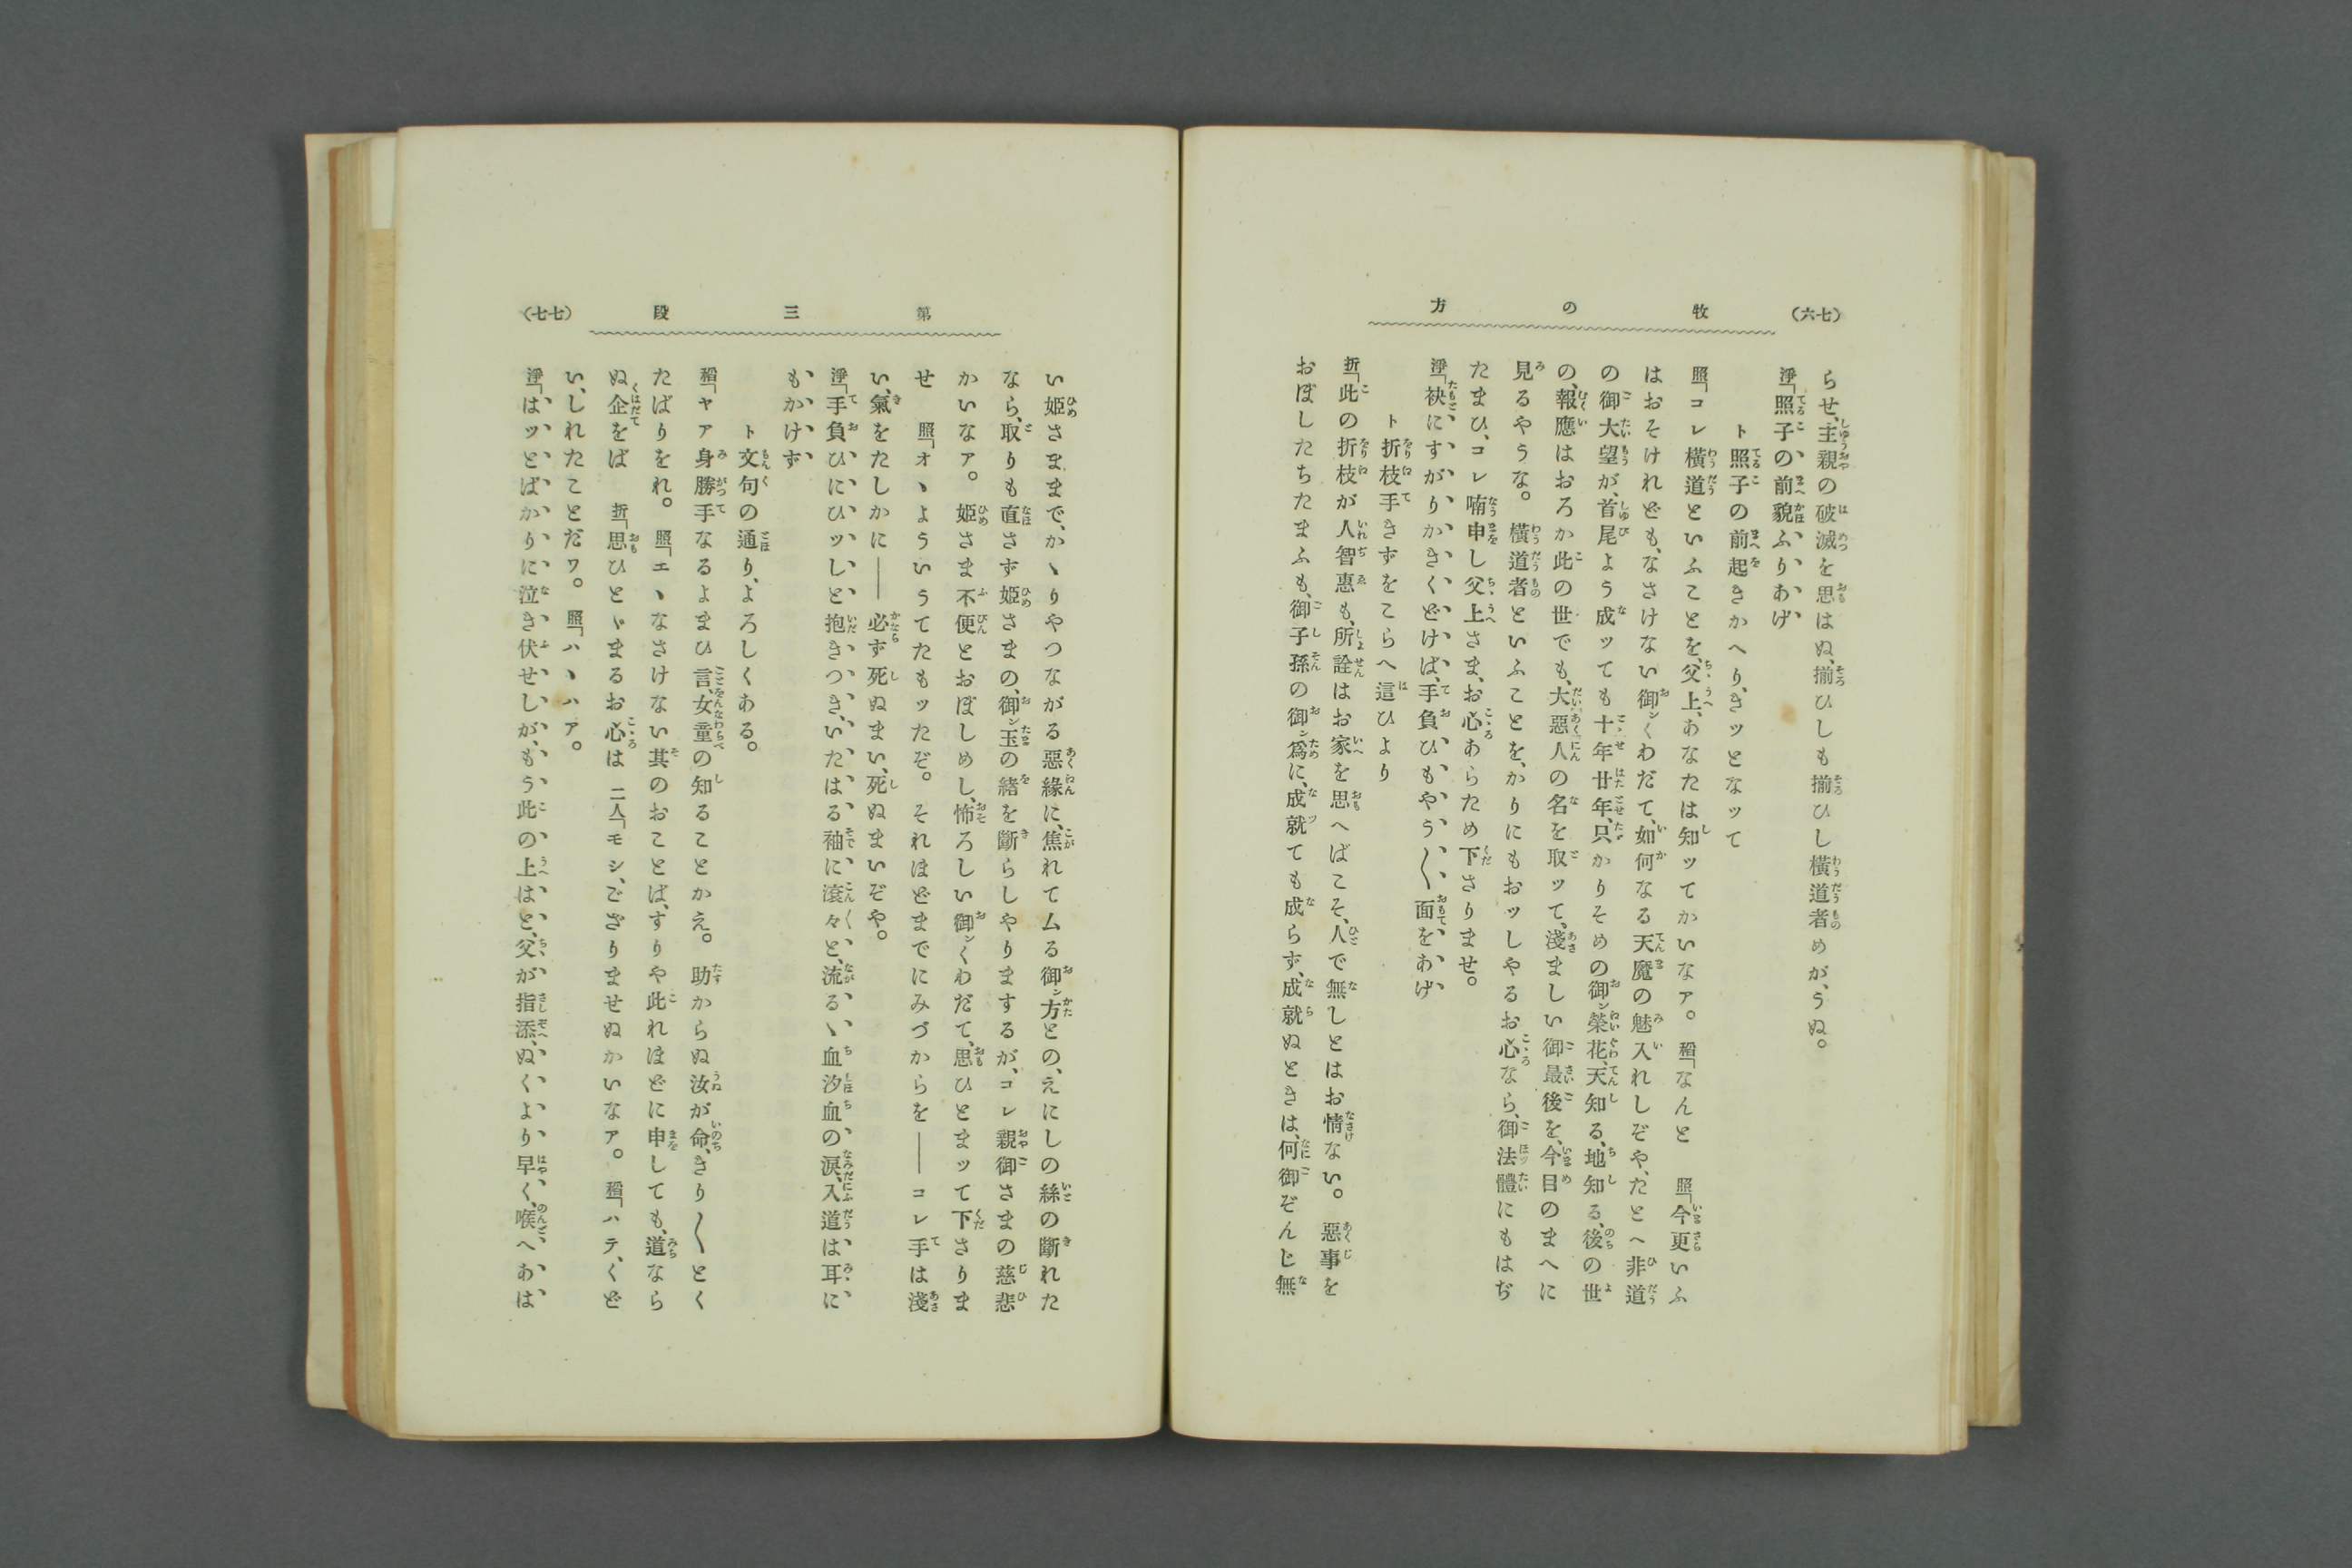 （七六）
牧の方
らせ、主親の破滅を思はぬ、揃ひしも揃ひし橫道者めが、うぬ。
淨「照子の前貌ふりあげ
ト照子の前起きかへり、きッとなッて
照「コレ橫道といふことを、父上、あなたは知ッてかいなア。　稻「なんと　照「今更いふ
はおそけれども、なさけない御ンくわだて、如何なる天魔の魅入れしぞや、たとへ非道
の御大望が、首尾よう成ッても十年廿年、只かりそめの御ン榮花、天知る、地知る、後の世
の、報應はおろか此の世でも、大惡人の名を取ッて、淺ましい御最後を、今目のまへに
見るやうな。　橫道者といふことを、かりにもおッしやるお心なら、御法體にもはぢ
たまひ、コレ喃申し父上さま、お心あらため下さりませ。
淨「袂にすがりかきくどけば、手負ひもやう〳〵面をあげ
ト折枝手きずをこらへ這ひより
折「此の折枝が人智惠も、所詮はお家を思へばこそ、人で無しとはお情ない。　惡事を
おぼしたちたまふも、御子孫の御ン爲に、成就ても成らず、成就ぬときは、何御ぞんじ無
第三段
（七七）
い姬さままで、かゝりやつながる惡緣に、焦れてムる御ン方との、えにしの絲の斷れた
なら、取りも直さず姬さまの、御ン玉の緖を斷らしやりまするが、コレ親御さまの慈悲
かいなア。　姬さま不便とおぼしめし、怖ろしい御ンくわだて、思ひとまッて下さりま
せ　照「オヽよういうてたもッたぞ。　それほどまでにみづからを――コレ手は淺
い、氣をたしかに――必ず死ぬまい、死ぬまいぞや。
淨「手負ひにひッしと抱きつき、いたはる袖に滾々と、流るゝ血汐血の淚、入道は耳に
もかけず
ト文句の通り、よろしくある。
稻「ヤア身勝手なるよまひ言、女童の知ることかえ。　助からぬ汝が命、きり〳〵とく
たばりをれ。　照「エヽなさけない其のおことば、すりや此れほどに申しても、道なら
ぬ企をば　折「思ひとゞまるお心は　二人「モシ、ござりませぬかいなア。　稻「ハテ、くど
い、しれたことだワ。　照「ハヽハア。
淨「はッとばかりに泣き伏せしが、もう此の上はと、父が指添、ぬくより早く、喉へあは